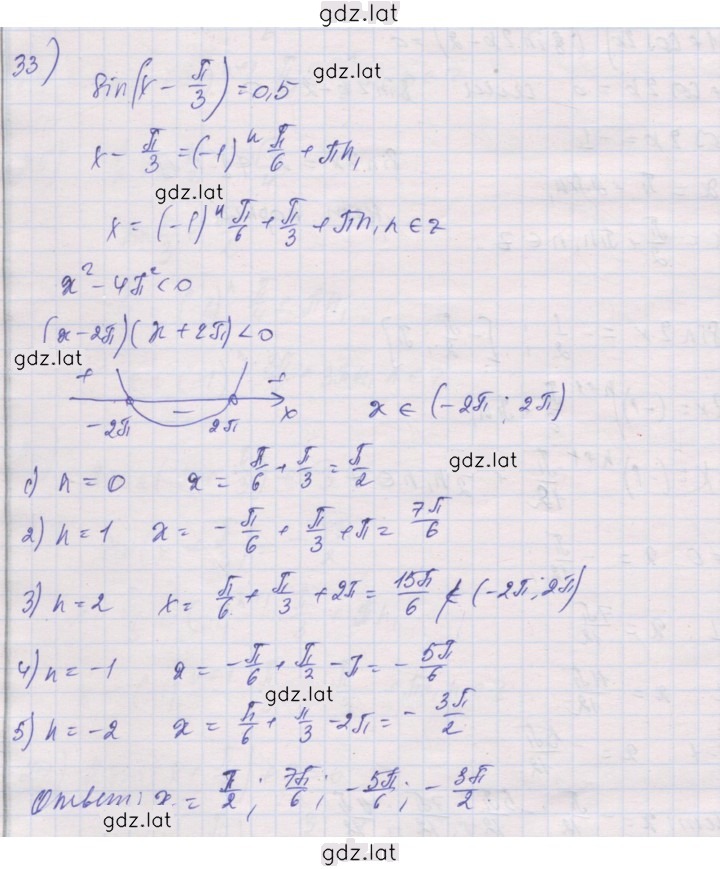 gdz.lat
33)
sin(x - π/3) = 0,5
gdz.lat
x - π/3 = (-1)ⁿ π/6 + πn,
gdz.lat
x = (-1)ⁿ π/6 + π/3 + πn, n ∈ z
x² - 4π² < 0
(x - 2π)(x + 2π) < 0
gdz.lat
+ - + x
-2π 2π
x ∈ (-2π; 2π)
gdz.lat
1) n = 0 x = π/6 + π/3 = π/2
2) n = 1 x = - π/6 + π/3 + π = 7π/6
3) n = 2 x = π/6 + π/3 + 2π = 15π/6 ∉ (-2π; 2π)
4) n = -1 x = - π/6 + π/2 - π = - 5π/6
gdz.lat
5) n = -2 x = π/6 + π/3 - 2π = - 3π/2
Ответ: x = π/2; 7π/6; -5π/6; - 3π/2.
gdz.lat
gdz.lat